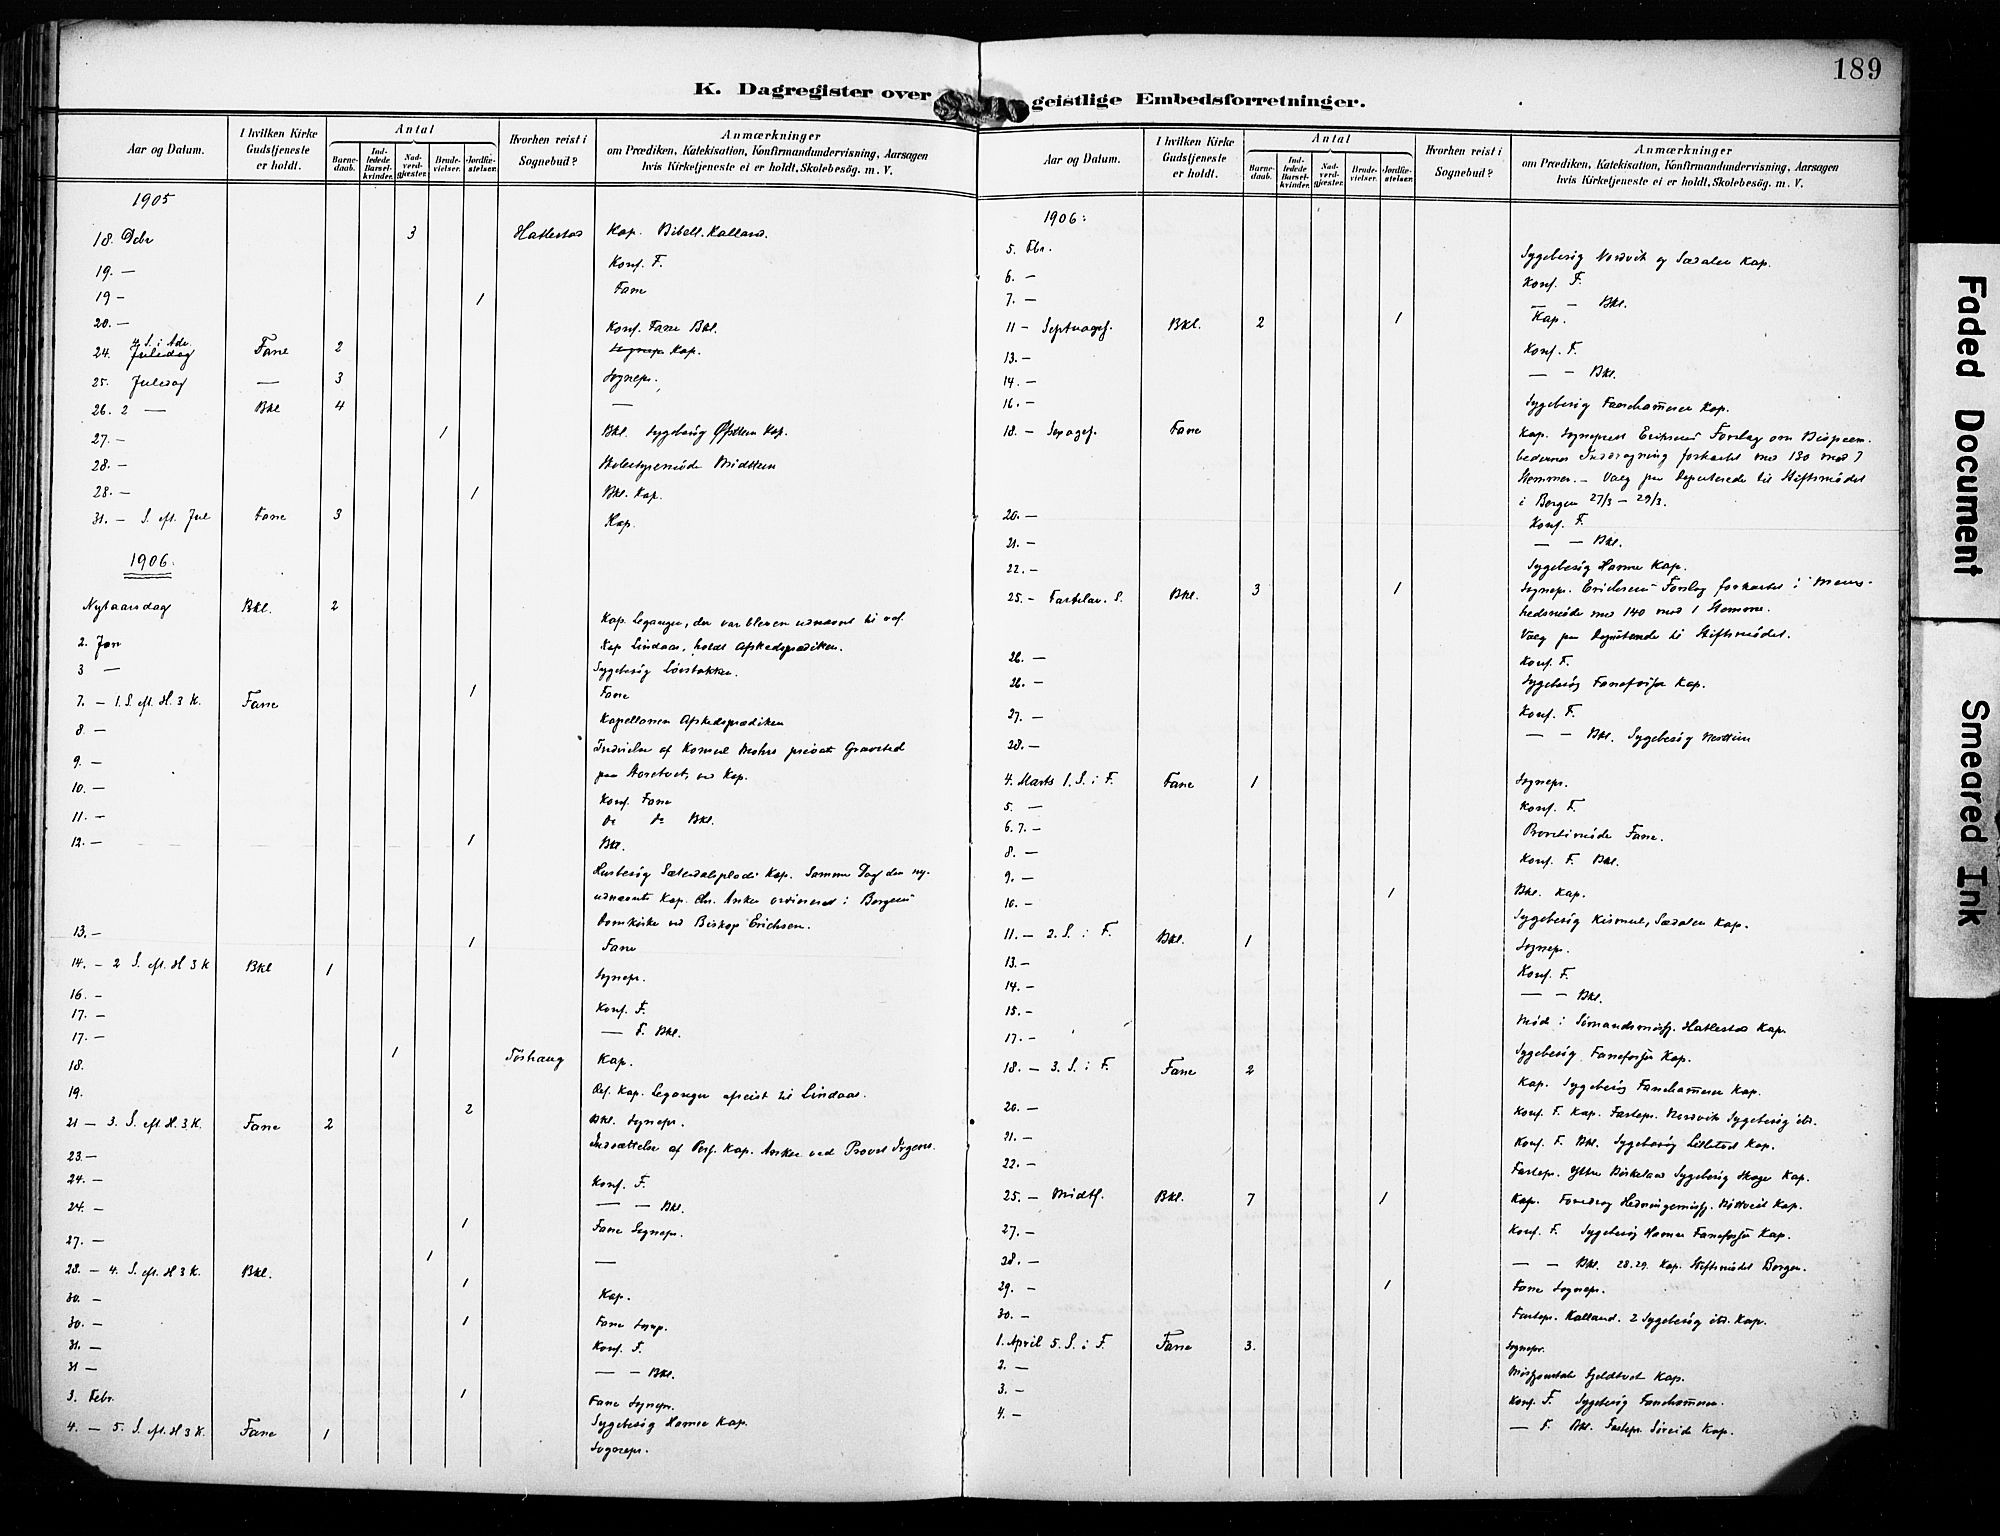 189
K. Dagregister over geistlige Embedsforretninger.
Aar og Datum. | I hvilken Kirke Gudstjeneste er holdt. | Antal | Barnedaab. | Indledede Barselkvinder. | Nadverdgjester. | Brudevielser. | Jordfæstelser. | Hvorhen reist i Sognebud? | Anmærkninger om Prædiken, Katekisation, Konfirmandundervisning, Aarsagen hvis Kirketjeneste ei er holdt, Skolebesög. m. V.
1905
18. Dcbr 3 Hatlestad Kap. Bibell. Kalland.
19. — Konf. F.
19 — 1 Fane
20. — Konf. Fane Bkl.
4 S. i Adv.
24. Juledag Fane 2 Sognepr. Kap.
25. Juledag — 3 Sognepr.
26. 2 — Bkl 4 —
27. — 1 Bkl. Sygebesög Kap.
28. — Midttun
28. — 1 Bkl. Kap.
31. — S. eft. Jul Fane 3 Kap.
1906.
Nytaarsdag Bkl. 2
Kap. Leganger, der var bleven udnævnt til
2. Jan Kap Lindaas, holdt Afskedsprædiken.
3 — Sygebesög Lövstakken.
7. — 1. S. eft. H. 3 K. Fane 1 Fane
8 — Kapellanen Afskedsprædiken
9. — Indvielse af Konsul Mohrs privat Gravsted
10. — paa ved Kap.
11. — Konf. Fane
do do Bkl.
12. — 1 Bkl.
Husbesög Kap. Samme Dag den ny-
udnævnte Kap. Chr. Anker ordineret i Bergens
13. — Domkirke ved Biskop Erichsen.
1 Fane
14. — 2 S. eft. H 3 K Bkl 1 Sognepr.
16. —
17. — Konf. F.
17. — — F. Bkl.
18. 1 Kap.
19. Ref. Kap. Leganger afreist til Lindaas.
21 — 3. S. eft H. 3 K. Fane 2 2 Bkl. Sognepr.
23. — Indsættelse af Pers. Kap. Anker ved Provst
24. — Konf. F.
24. — — — Bkl.
27. — 1 Fane Sognepr.
28. — 4. S. eft. H 3 K. Bkl. 1 —
30. — 1 Kap.
30. — 1 Fane Sognp.
31. — Konf. F.
31 — — — Bkl.
3. Febr. 1 Fane Sognepr.
4. — 5. S. eft. H 3 K. Fane 1 Sygebesög Hamre Kap.
Sognepr.
Aar og Datum. | I hvilken Kirke Gudstjeneste er holdt. | Antal | Barnedaab. | Indledede Barselkvinder. | Nadverdgjester. | Brudevielser. | Jordfæstelser. | Hvorhen reist i Sognebud? | Anmærkninger om Prædiken, Katekisation, Konfirmandundervisning, Aarsagen hvis Kirketjeneste ei er holdt, Skolebesög. m. V.
1906:
5. Fbr. Sygebesög Nordvik og Sædalen Kap.
6. — Konf. F.
7. — — — Bkl.
11 — Septuages. Bkl. 2 1 Kap.
13. — Konf. F.
14. — — — Bkl.
16. — Sygebesög Fanehammeren Kap.
18. — Sexages. Fane Kap. Sogneprest Eriksens Forslag om Bispeem-
bedernes Inddragning forkastet med 130 mod 7
Stemmer. — Valg paa Deputerede til Stiftsmödet
i Bergen 27/3 — 29/3.
20. — Konf. F.
21. — — — Bkl.
22. — Sygebesög Hamre Kap.
25. — Fastelav. S. Bkl. 3 1 Sognepr. Erichsens Forslag forkastet i Menig-
hedsmöde med 140 mod 1 Stemme.
Valg paa Deputerede til Stiftsmödet.
26. — Konf. F.
26. — Sygebesög Kap.
27. — Konf. F.
28. — — — Bkl. Sygebesög Nesttun
4. Marts 1. S. i F. Fane 1 Sognepr.
5. — Konf. F.
6. 7. — Fane.
8. — Konf. F. Bkl.
9. — 1 Bkl. Kap.
10. — Sygebesög Kismul, Sædalen Kap.
11. — 2. S. i F. Bkl. 1 Sognepr.
13. — Konf. F.
14. — — — Bkl.
15. — Möde i Sömandsmisj. Hatlestad Kap.
17. — Sygebesög Kap.
18. — 3. S. i F. Fane 2 Kap. Sygebesög Fanehammeren Kap.
20. — Konf. F. Kap. Fastepr. Nordvik Sygebesög ibd.
21. — Konf. F. Bkl. Sygebesög Kap.
22. — Fastepr. Ytre Birkeland Sygebesög Skage Kap.
25. — Midtf. Bkl. 7 1 Kap. Foredrag Hedningemisj. Kap.
27. — Konf. F. Sygebesög Hamre Kap.
28. — — — Bkl. 28.29. Kap. Stiftsmödet Bergen.
29. — 1 Fane Sognepr.
30. — Fastepr. Kalland. 2 Sygebesög ibd. Kap.
1. April 5. S. i F. Fane 3. Sognepr.
2. — Kap.
3. — Konf. F. Sygebesög Fanehammeren.
4. — — F. Bkl. Fastepr. Söreide Kap.
Faded Document
Smeared Ink